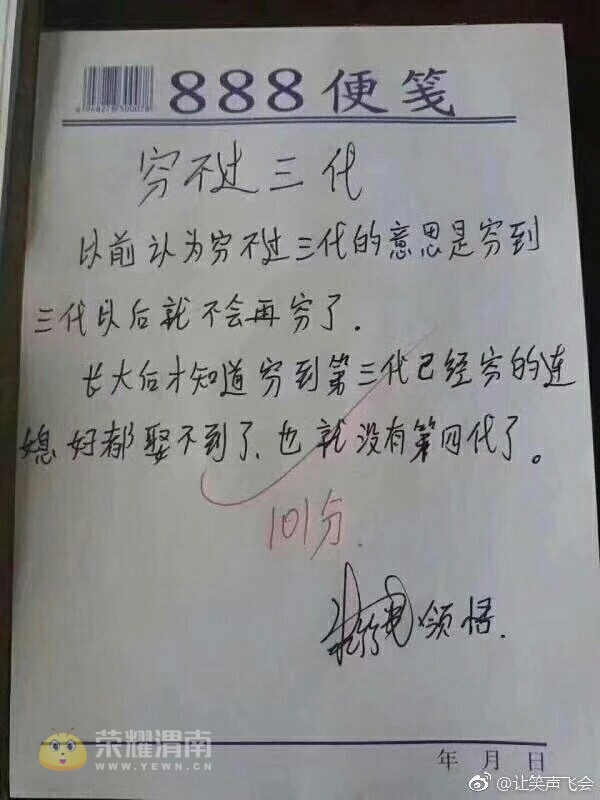 888便笺
穷不过三代
以前认为穷不过三代的意思是穷到
三代以后就不会再穷了.
长大后才知道穷到第三代已经穷的连
媳好都娶不到了、也就没有第四代了。
101分.
领悟.
年 月 日
荣耀渭南
WWW.YEWN.CN
@让笑声飞会